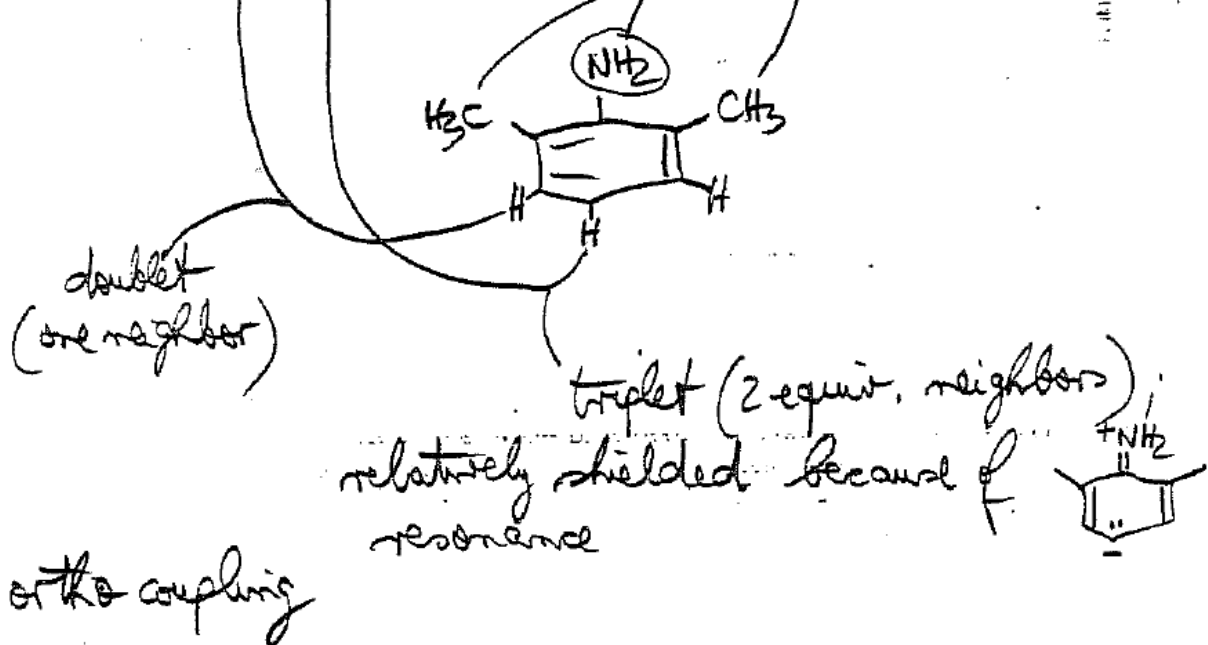 NH2
H3C
CH3
H
H
H
doublet
(one neighbor)
triplet (2 equiv. neighbors);
relatively shielded because of
+NH2
resonance
ortho coupling